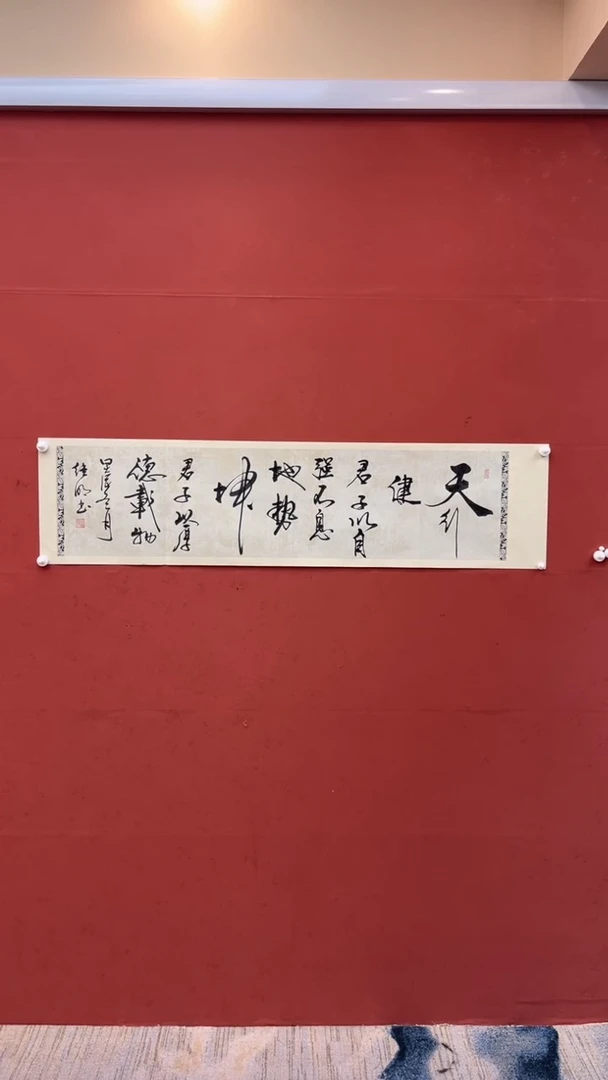 天行
健
君子以自
强不息
地势
坤
君子以厚
德载物
书